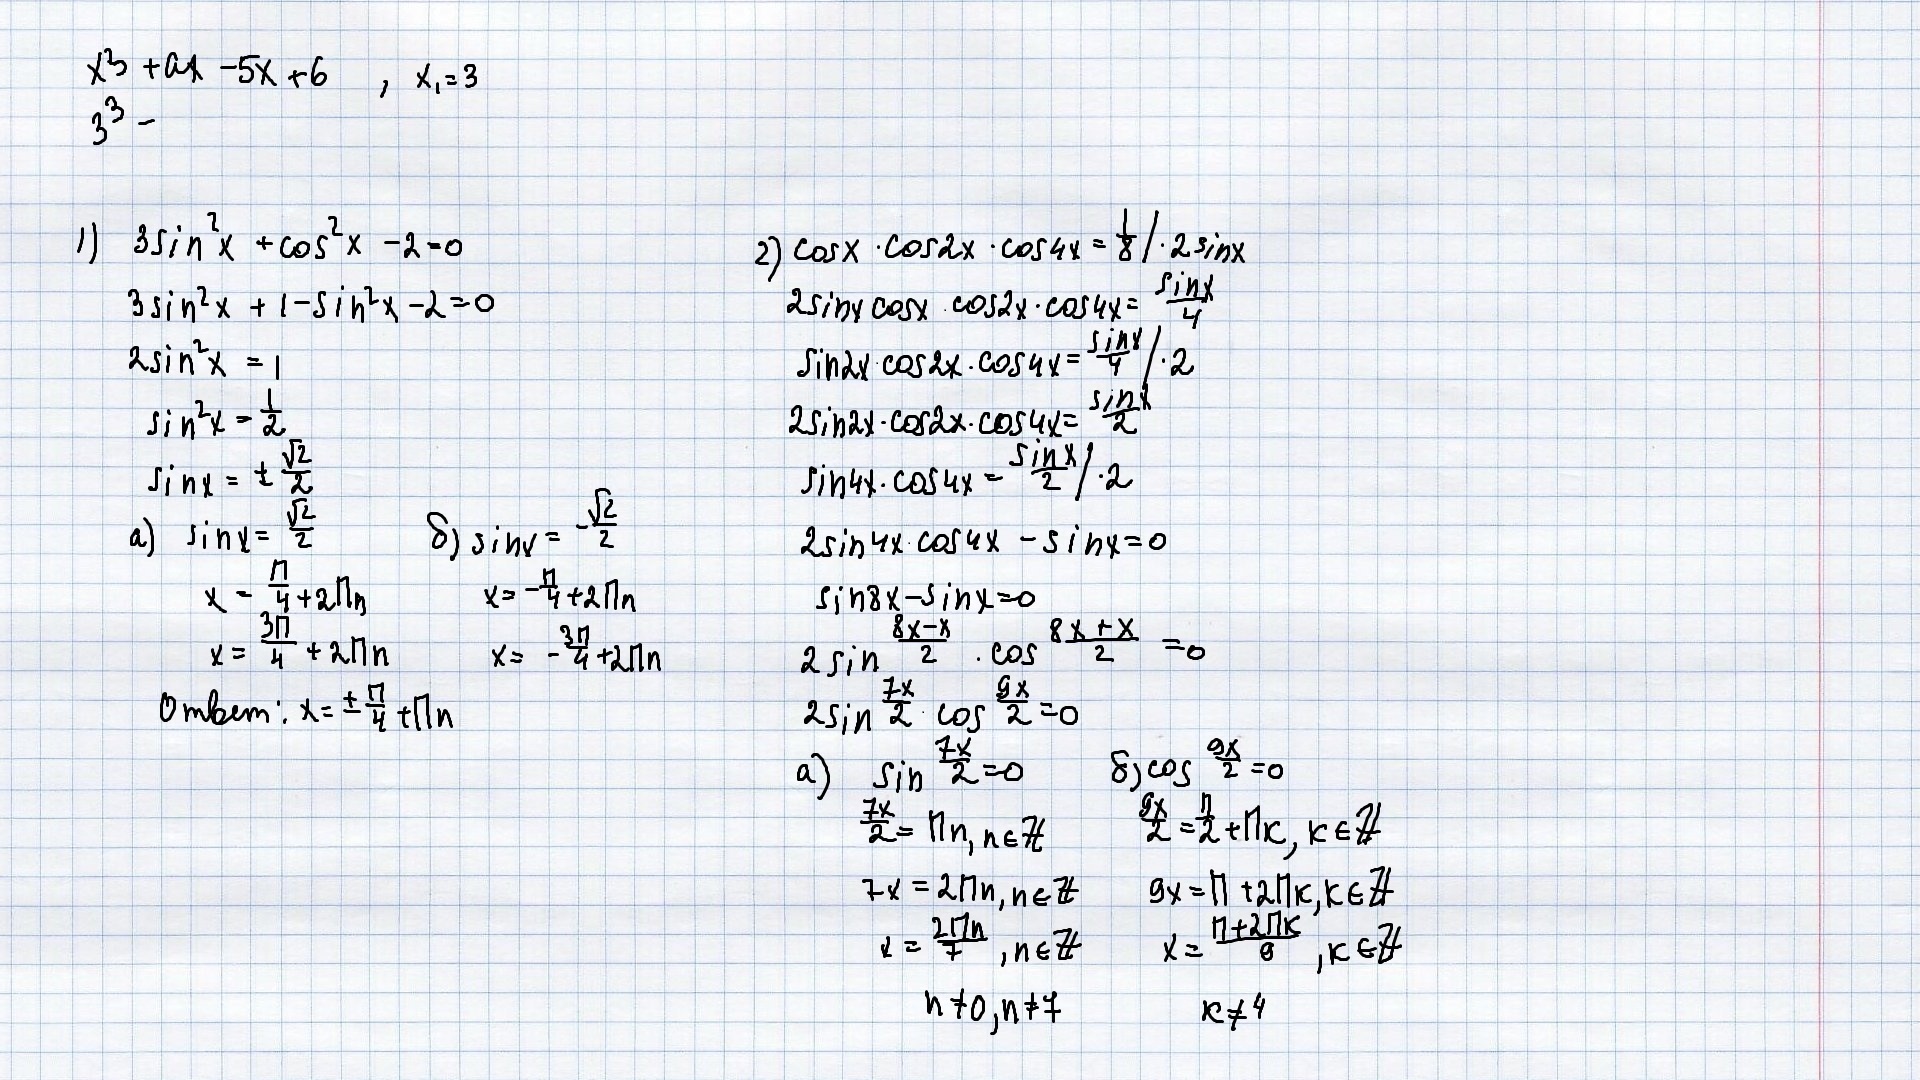 x³ + ax - 5x + 6 , x₁ = 3
3³ -
1) 3sin²x + cos²x - 2 = 0
3sin²x + 1 - sin²x - 2 = 0
2sin²x = 1
sin²x = 1/2
sinx = ± √2/2
а) sinx = √2/2
x = П/4 + 2Пn
x = 3П/4 + 2Пn
б) sinx = -√2/2
x = -П/4 + 2Пn
x = -3П/4 + 2Пn
Ответ: x = ± П/4 + Пn
2) cosx · cos2x · cos4x = 1/8 / · 2sinx
2sinx cosx · cos2x · cos4x = sinx/4
sin2x · cos2x · cos4x = sinx/4 / · 2
2sin2x · cos2x · cos4x = sinx/2
sin4x · cos4x = sinx/2 / · 2
2sin4x · cos4x - sinx = 0
sin8x - sinx = 0
2sin (8x-x)/2 · cos (8x+x)/2 = 0
2sin 7x/2 · cos 9x/2 = 0
а) sin 7x/2 = 0
7x/2 = Пn, n ∈ ℤ
7x = 2Пn, n ∈ ℤ
x = 2Пn/7 , n ∈ ℤ
n ≠ 0, n ≠ 7
б) cos 9x/2 = 0
9x/2 = П/2 + Пк, к ∈ ℤ
9x = П + 2Пк, к ∈ ℤ
x = (П + 2Пк)/9 , к ∈ ℤ
к ≠ 4